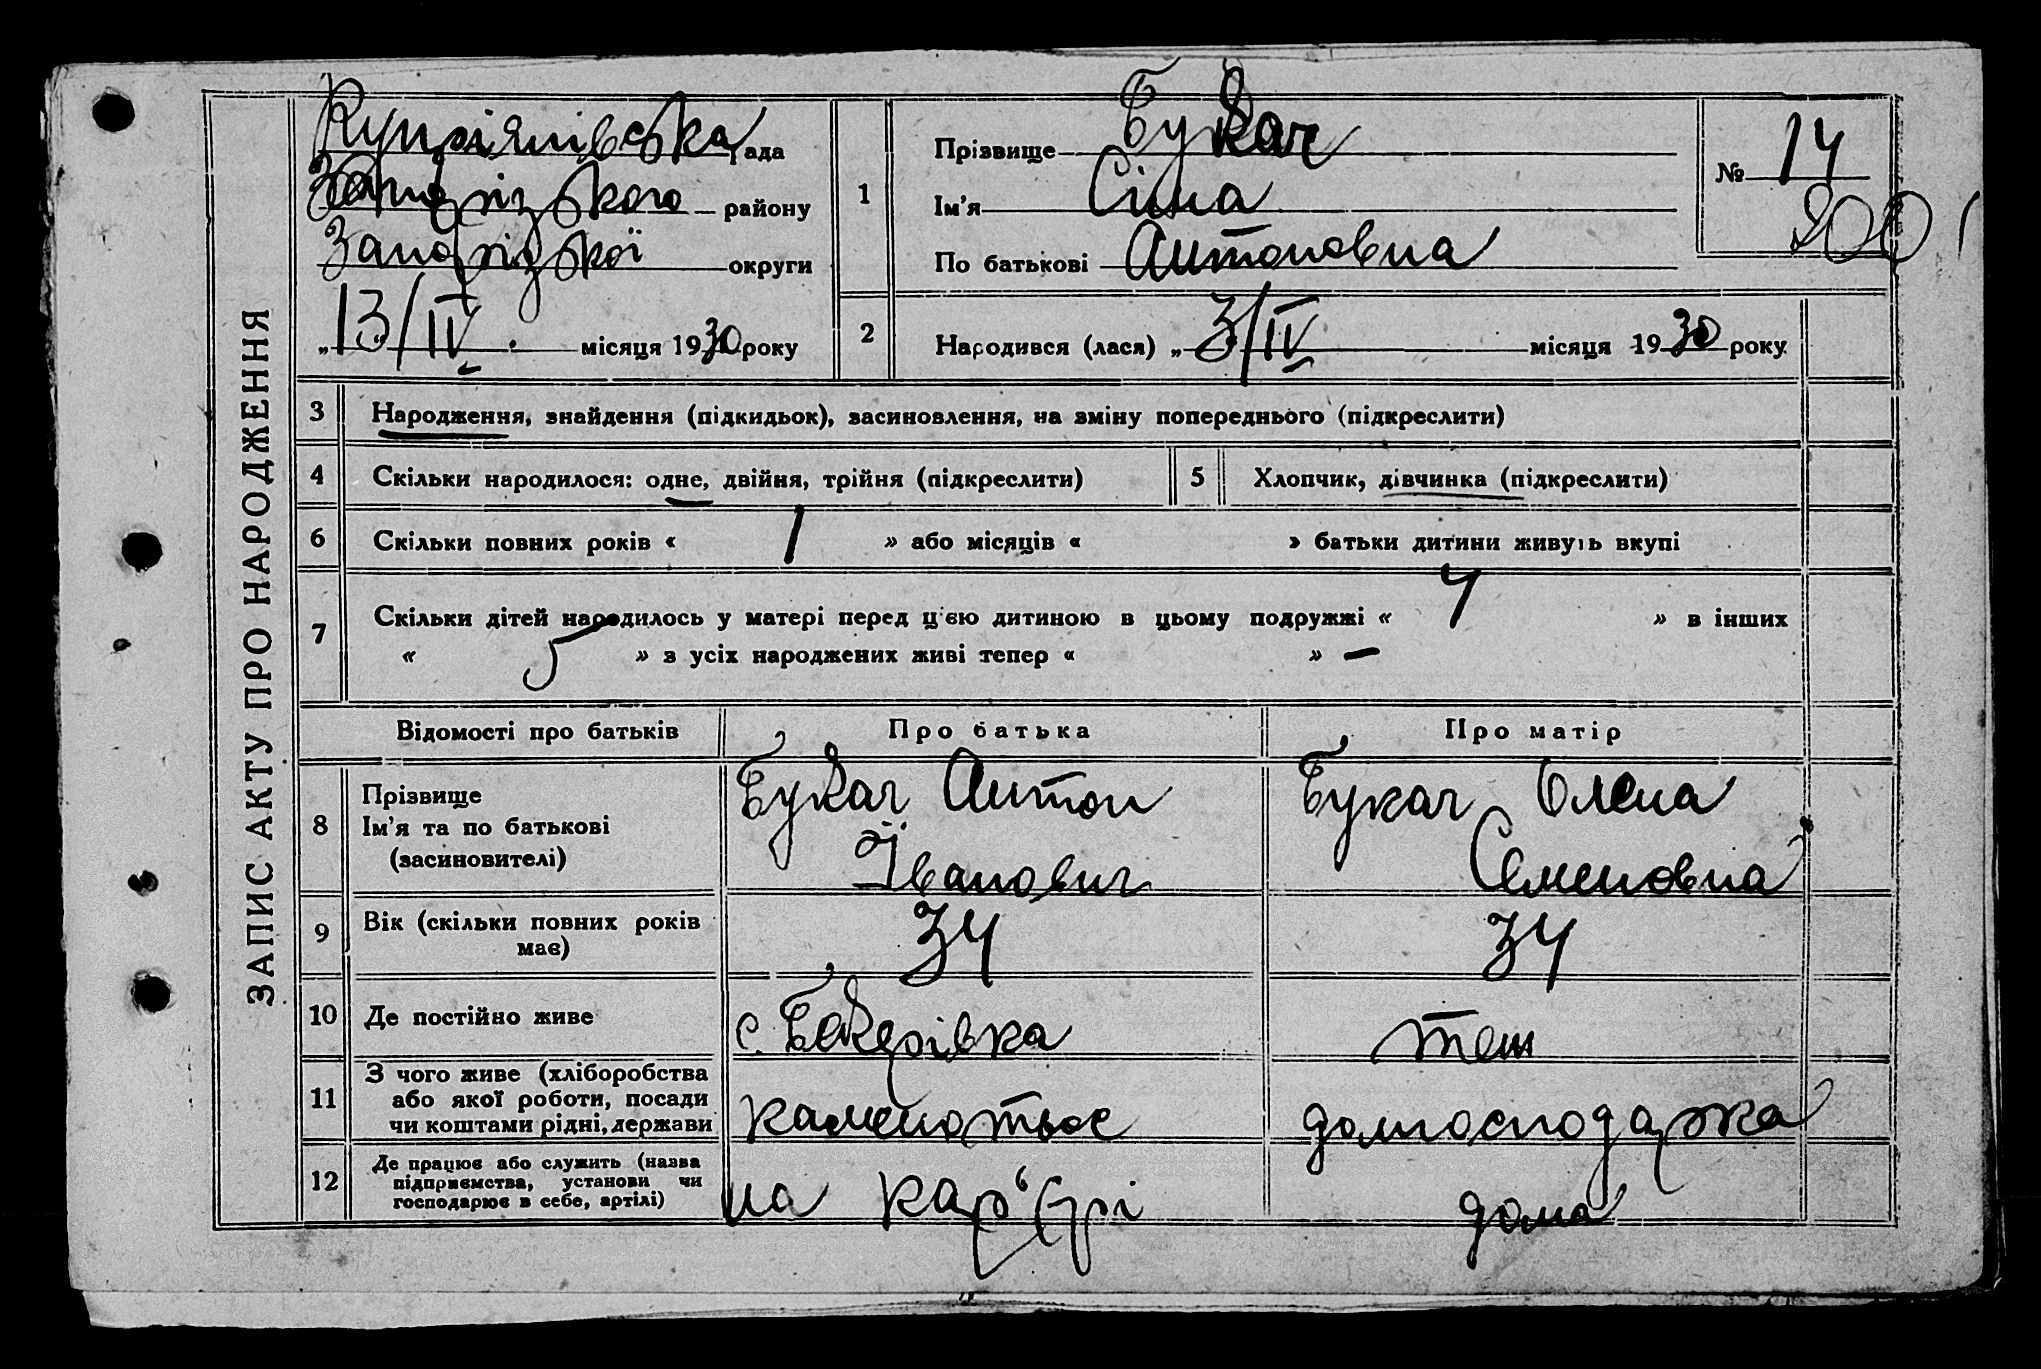 ЗАПИС АКТУ ПРО НАРОДЖЕННЯ
Купріянівська рада
Запорізького району
Запорізької округи
„13/IV місяця 1930 року
1
Прізвище Букач
Ім'я Сіма
По батькові Антоновна
№ 14
200
2
Народився (лася) „3/IV місяця 1930 року
3 Народження, знайдення (підкидьок), засиновлення, на зміну попереднього (підкреслити)
4 Скільки народилося: одне, двійня, трійня (підкреслити) 5 Хлопчик, дівчинка (підкреслити)
6 Скільки повних років « 1 » або місяців « » батьки дитини живуть вкупі
7 Скільки дітей народилось у матері перед ц'єю дитиною в цьому подружжі « 4 » в інших
« 5 » з усіх народжених живі тепер « » —
Відомості про батьків Про батька Про матір
8 Прізвище
Ім'я та по батькові
(засиновителі)
Букач Антон
Іванович
Букач Олена
Семеновна
9 Вік (скільки повних років
має)
34 34
10 Де постійно живе с. тєж
11 З чого живе (хліборобства
або якої роботи, посади
чи коштами рідні, держави
каменотьос домгосподарка
12 Де працює або служить (назва
підприємства, установи чи
господарює в себе, артілі)
на кар'єрі дома